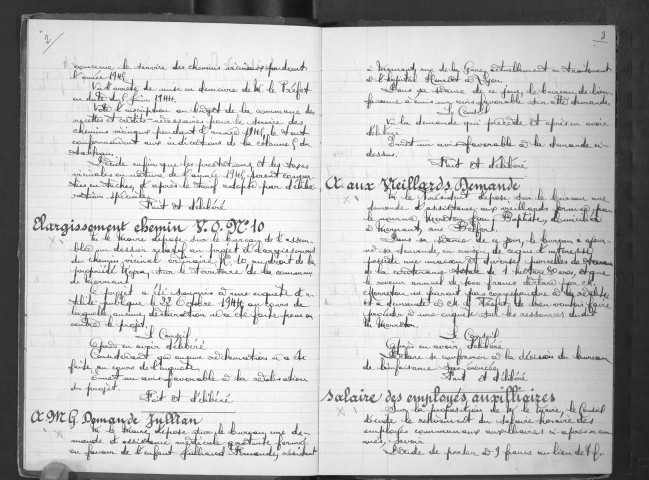 2
concerne le service des chemins vicinaux pendant
l'année 1945,
Vu l'arrêté de mise en demeure de M. le Préfet
en date du juin 1944,
Vote l'inscription au budget de la commune des
recettes et crédits nécessaires pour le service des
chemins vicinaux pendant l'année 1945, le tout
conformément aux indications de la colonne 6 du
tableau.
Décide enfin que les prestations et les taxes
vicinales en nature de l'année 1945, seront
en tâches, d'après le tarif adopté par délibé-
ration spéciale.
Fait et délibéré
Elargissement chemin V.O. N° 10
M. le Maire dépose sur le bureau de l'assem-
blée un dossier relatif au projet d'élargissement
du chemin vicinal ordinaire N° 10 au droit de la
propriété sur le territoire de la commune
de Mornant.
Le projet a été soumis à une enquête d'u-
tilité publique le 22 Octobre 1944 au cours de
laquelle aucune déclaration n'a été faite pour ou
contre le projet.
Le Conseil
Après en avoir délibéré
Considérant que aucune réclamation n'a été
faite au cours de l'enquête
Emet un avis favorable à la réalisation
du projet.
Fait et délibéré
A M G Demande Jullian
M. le Maire dépose sur le bureau une de-
mande d'assistance médicale gratuite formée
en faveur de l'enfant Jullian résidant
3
à Mornant, rue de la Gare, actuellement en traitement
à l'hôpital Herriot à Lyon.
Dans sa séance de ce jour, le bureau de bien-
faisance a émis un avis favorable sur cette demande.
Le Conseil
Vu la demande qui précède et après en avoir
délibéré
Emet un avis favorable à la demande ci-
dessus.
Fait et délibéré
A aux Vieillards Demande
M. le Président dépose sur le bureau une
demande d'assistance aux vieillards formée par
le nommé Jean Baptiste, domicilié
à Mornant, rue
Dans sa séance de ce jour, le bureau a ajour-
né sa demande, en raison de ce que l'intéressé
possède une maison et diverses parcelles de terrain
de la contenance totale de 1 hectare 20 ares, et que
le revenu annuel de 500 francs déclaré par
ne paraît pas correspondre à la réalité,
et a demandé à M. le Préfet de bien vouloir faire
procéder à une enquête sur les ressources dudit
Le Conseil
Après en avoir délibéré
Déclare se conformer à la décision du bureau
de bienfaisance sus-énoncée
Fait et délibéré
Salaire des employés auxiliaires
Sur la proposition de M. le Maire, le Conseil
décide le relèvement du salaire horaire des
employés communaux auxiliaires ci-après nom-
més, savoir
Décide de porter à 9 francs au lieu de 7 fr.